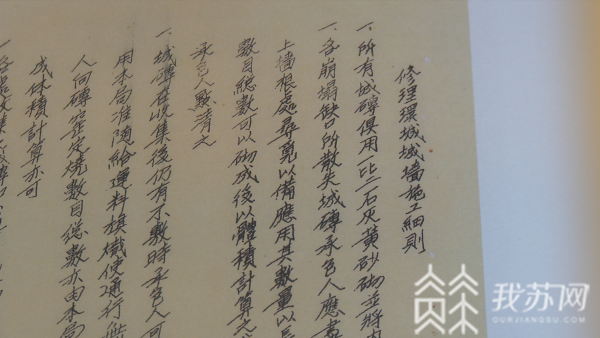 修理環城城墙施工細則
一.所有城磚俱用一比二石灰黄砂砌並將内
一.各崩塌缺口所散失城磚承包人應盡
上墙根處尋覓以備應用其數量以長
數目總數可以砌成後以體積計算之
承包人點清之
一.城磚在收集後仍有不敷時承包人可
用本局准随給運料旗幟使通行無
人向磚窑定燒數目總數亦由本局
成体積計算亦可
我苏网
OURJIANGSU.COM